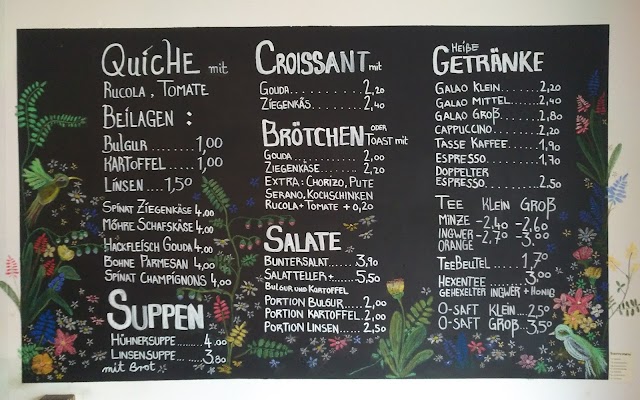 QUICHE mit
RUCOLA, TOMATE
BEILAGEN :
BULGUR ...... 1,00
KARTOFFEL ...... 1,00
LINSEN .... 1,50
SPINAT ZIEGENKÄSE 4,00
MÖHRE SCHAFSKÄSE 4,00
HACKFLEISCH GOUDA 4,00
BOHNE PARMESAN 4,00
SPINAT CHAMPIGNONS 4,00
SUPPEN
HÜHNERSUPPE ....... 4.00
LINSENSUPPE ....... 3,80
mit Brot
CROISSANT mit
GOUDA .......... 2,20
ZIEGENKÄS ....... 2,40
BRÖTCHEN ODER TOAST mit
GOUDA .......... 2,00
ZIEGENKÄSE ...... 2,20
EXTRA: CHORIZO, PUTE
SERANO, KOCHSCHINKEN
RUCOLA + TOMATE + 0,20
SALATE
BUNTERSALAT ...... 3,90
SALATTELLER + .... 5,50
BULGUR UND KARTOFFEL
PORTION BULGUR .... 2,00
PORTION KARTOFFEL .. 2,00
PORTION LINSEN ..... 2,50
HEIßE
GETRÄNKE
GALAO KLEIN ...... 2,20
GALAO MITTEL .... 2,40
GALAO GROß ...... 2,80
CAPPUCCINO ...... 2,20
TASSE KAFFEE ..... 1,90
ESPRESSO ........ 1,70
DOPPELTER
ESPRESSO ........ 2.50
TEE KLEIN GROß
MINZE - 2,40 - 2,60
INGWER - 2,70 - 3,00
ORANGE
TEEBEUTEL ...... 1,70
HEXENTEE ........ 3,00
GEHEXELTER INGWER + HONIG
O-SAFT KLEIN 2,50
O-SAFT GROß 3,50